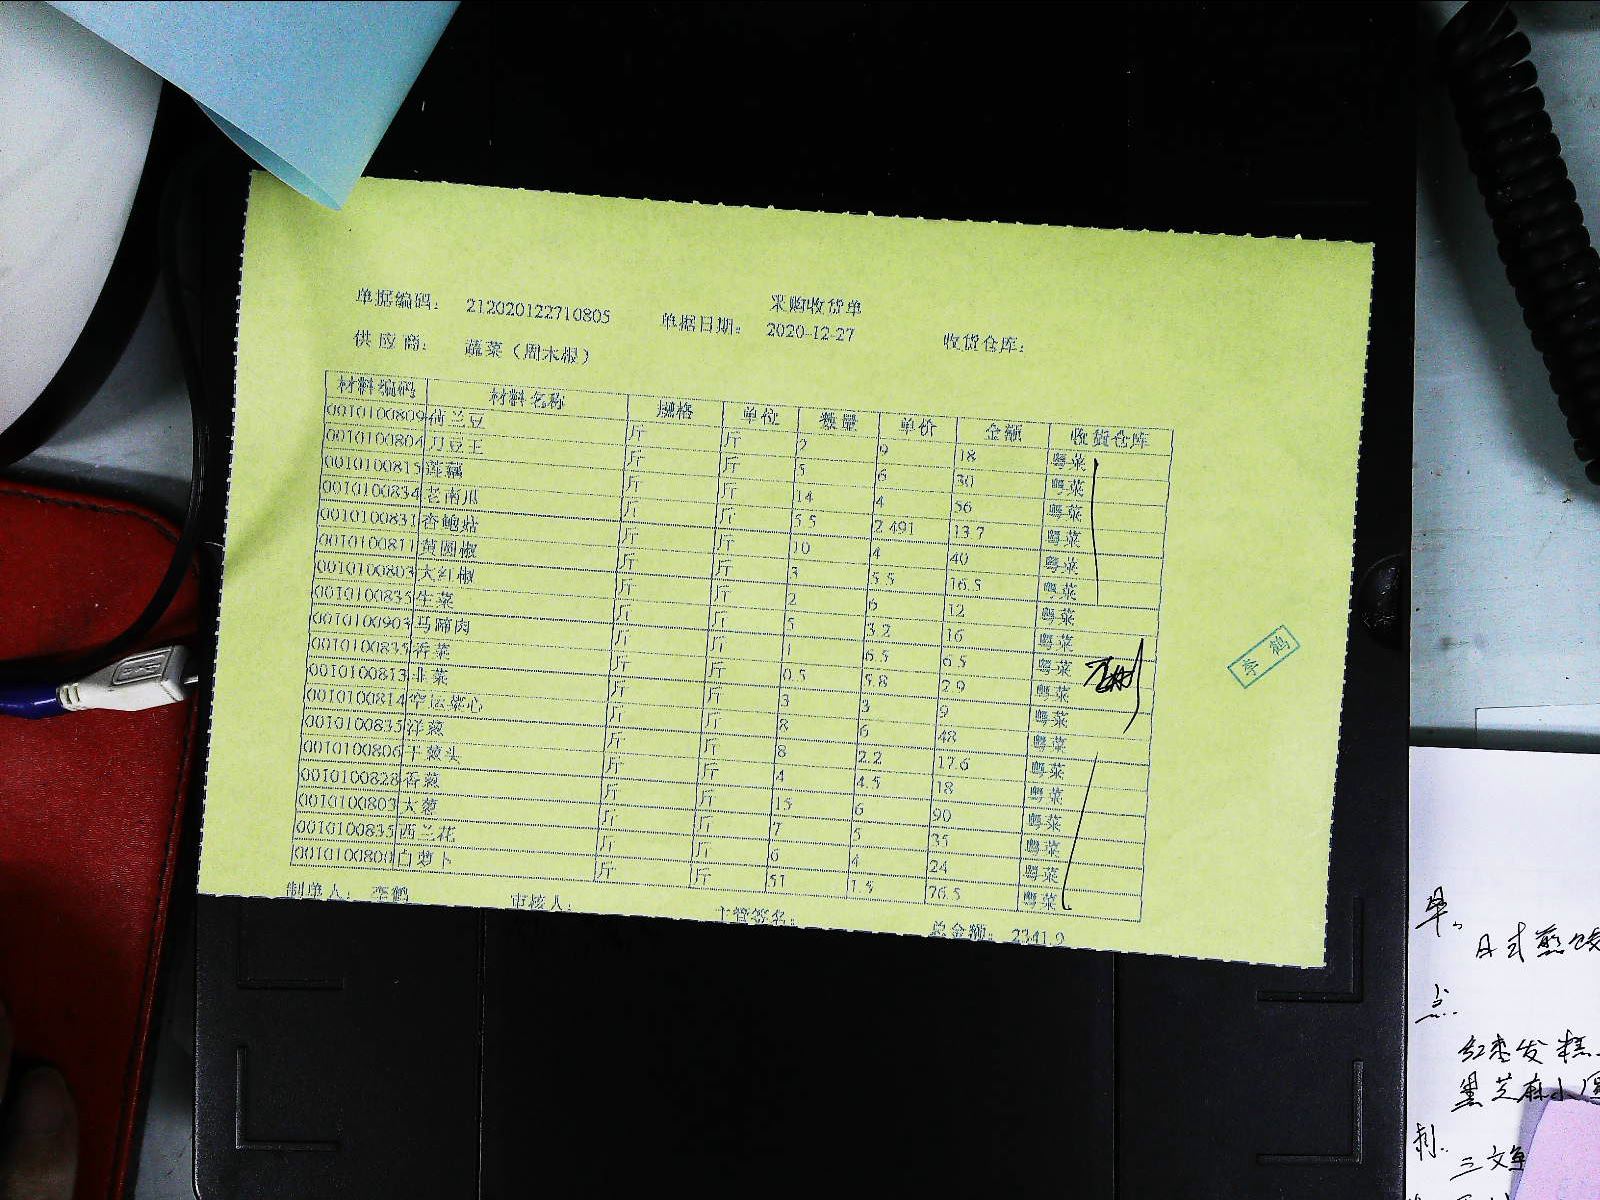 采购收货单
单据编码: 212020122710805 单据日期: 2020-12-27 收货仓库:
供应商: 蔬菜（周木根）
材料编码 材料名称 规格 单位 数量 单价 金额 收货仓库
0010100809 荷兰豆 斤 斤 2 9 18 粤菜
0010100804 月豆王 斤 斤 5 6 30 粤菜
0010100815 莲藕 斤 斤 14 4 56 粤菜
0010100834 老南瓜 斤 斤 5.5 2.491 13.7 粤菜
0010100831 杏鲍菇 斤 斤 10 4 40 粤菜
0010100811 黄圆椒 斤 斤 3 5.5 16.5 粤菜
0010100803 大红椒 斤 斤 2 6 12 粤菜
0010100835 生菜 斤 斤 5 3.2 16 粤菜
0010100903 马蹄肉 斤 斤 1 6.5 6.5 粤菜
0010100835 香菜 斤 斤 0.5 5.8 2.9 粤菜
0010100813 韭菜 斤 斤 3 3 9 粤菜
0010100814 空运菜心 斤 斤 8 6 48 粤菜
0010100835 洋葱 斤 斤 8 2.2 17.6 粤菜
0010100806 干葱头 斤 斤 4 4.5 18 粤菜
0010100828 香葱 斤 斤 15 6 90 粤菜
0010100803 大葱 斤 斤 7 5 35 粤菜
0010100835 西兰花 斤 斤 6 4 24 粤菜
0010100800 白萝卜 斤 斤 51 1.5 76.5 粤菜
制单人: 李鹤 审核人: 主管签名: 总金额: 2341.9
李鹤
早。
日式煎饺
点
红枣发糕
黑芝麻小
三文